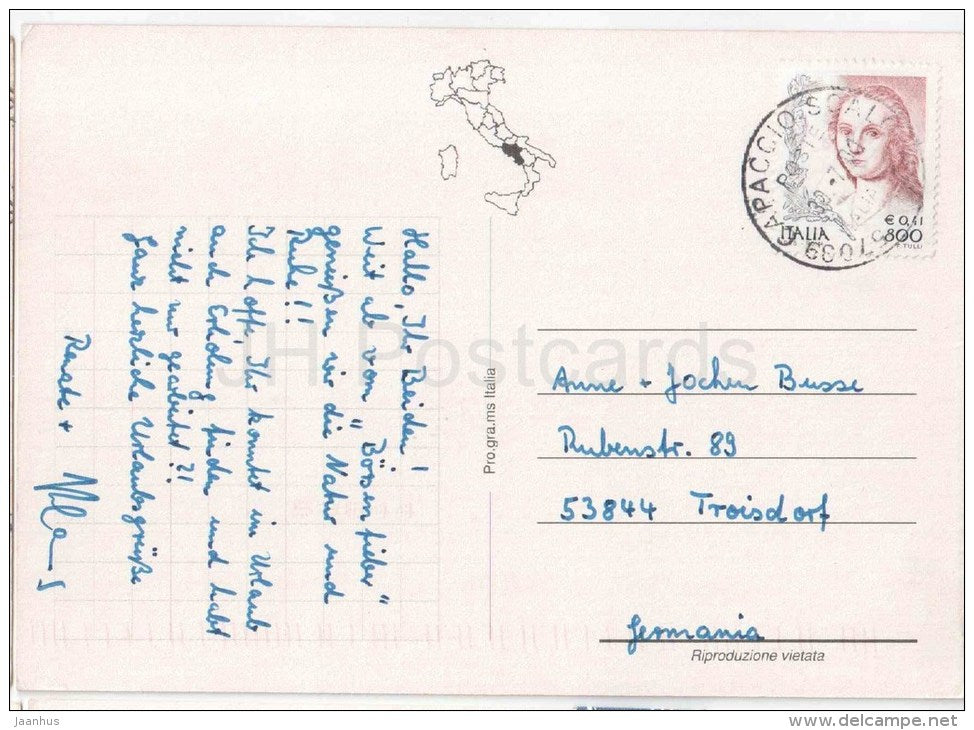 Hallo, Ihr Beiden!
Weit ab vom "Börsenfieber"
genießen wir die Natur und
Ruhe!!
Ich hoffe Ihr konntet im Urlaub
auch Erholung finden und habt
nicht nur gearbeitet?!
Ganz herzliche Urlaubsgrüße
Renate +
Pro.gra.ms Italia
CAPACCIO SCALO
ITALIA
€ 0,41
800
Anne + Jochen Busse
Rubenstr. 89
53844 Troisdorf
Germania
Riproduzione vietata
JH Postcards
jaanhus
www.delcampe.net